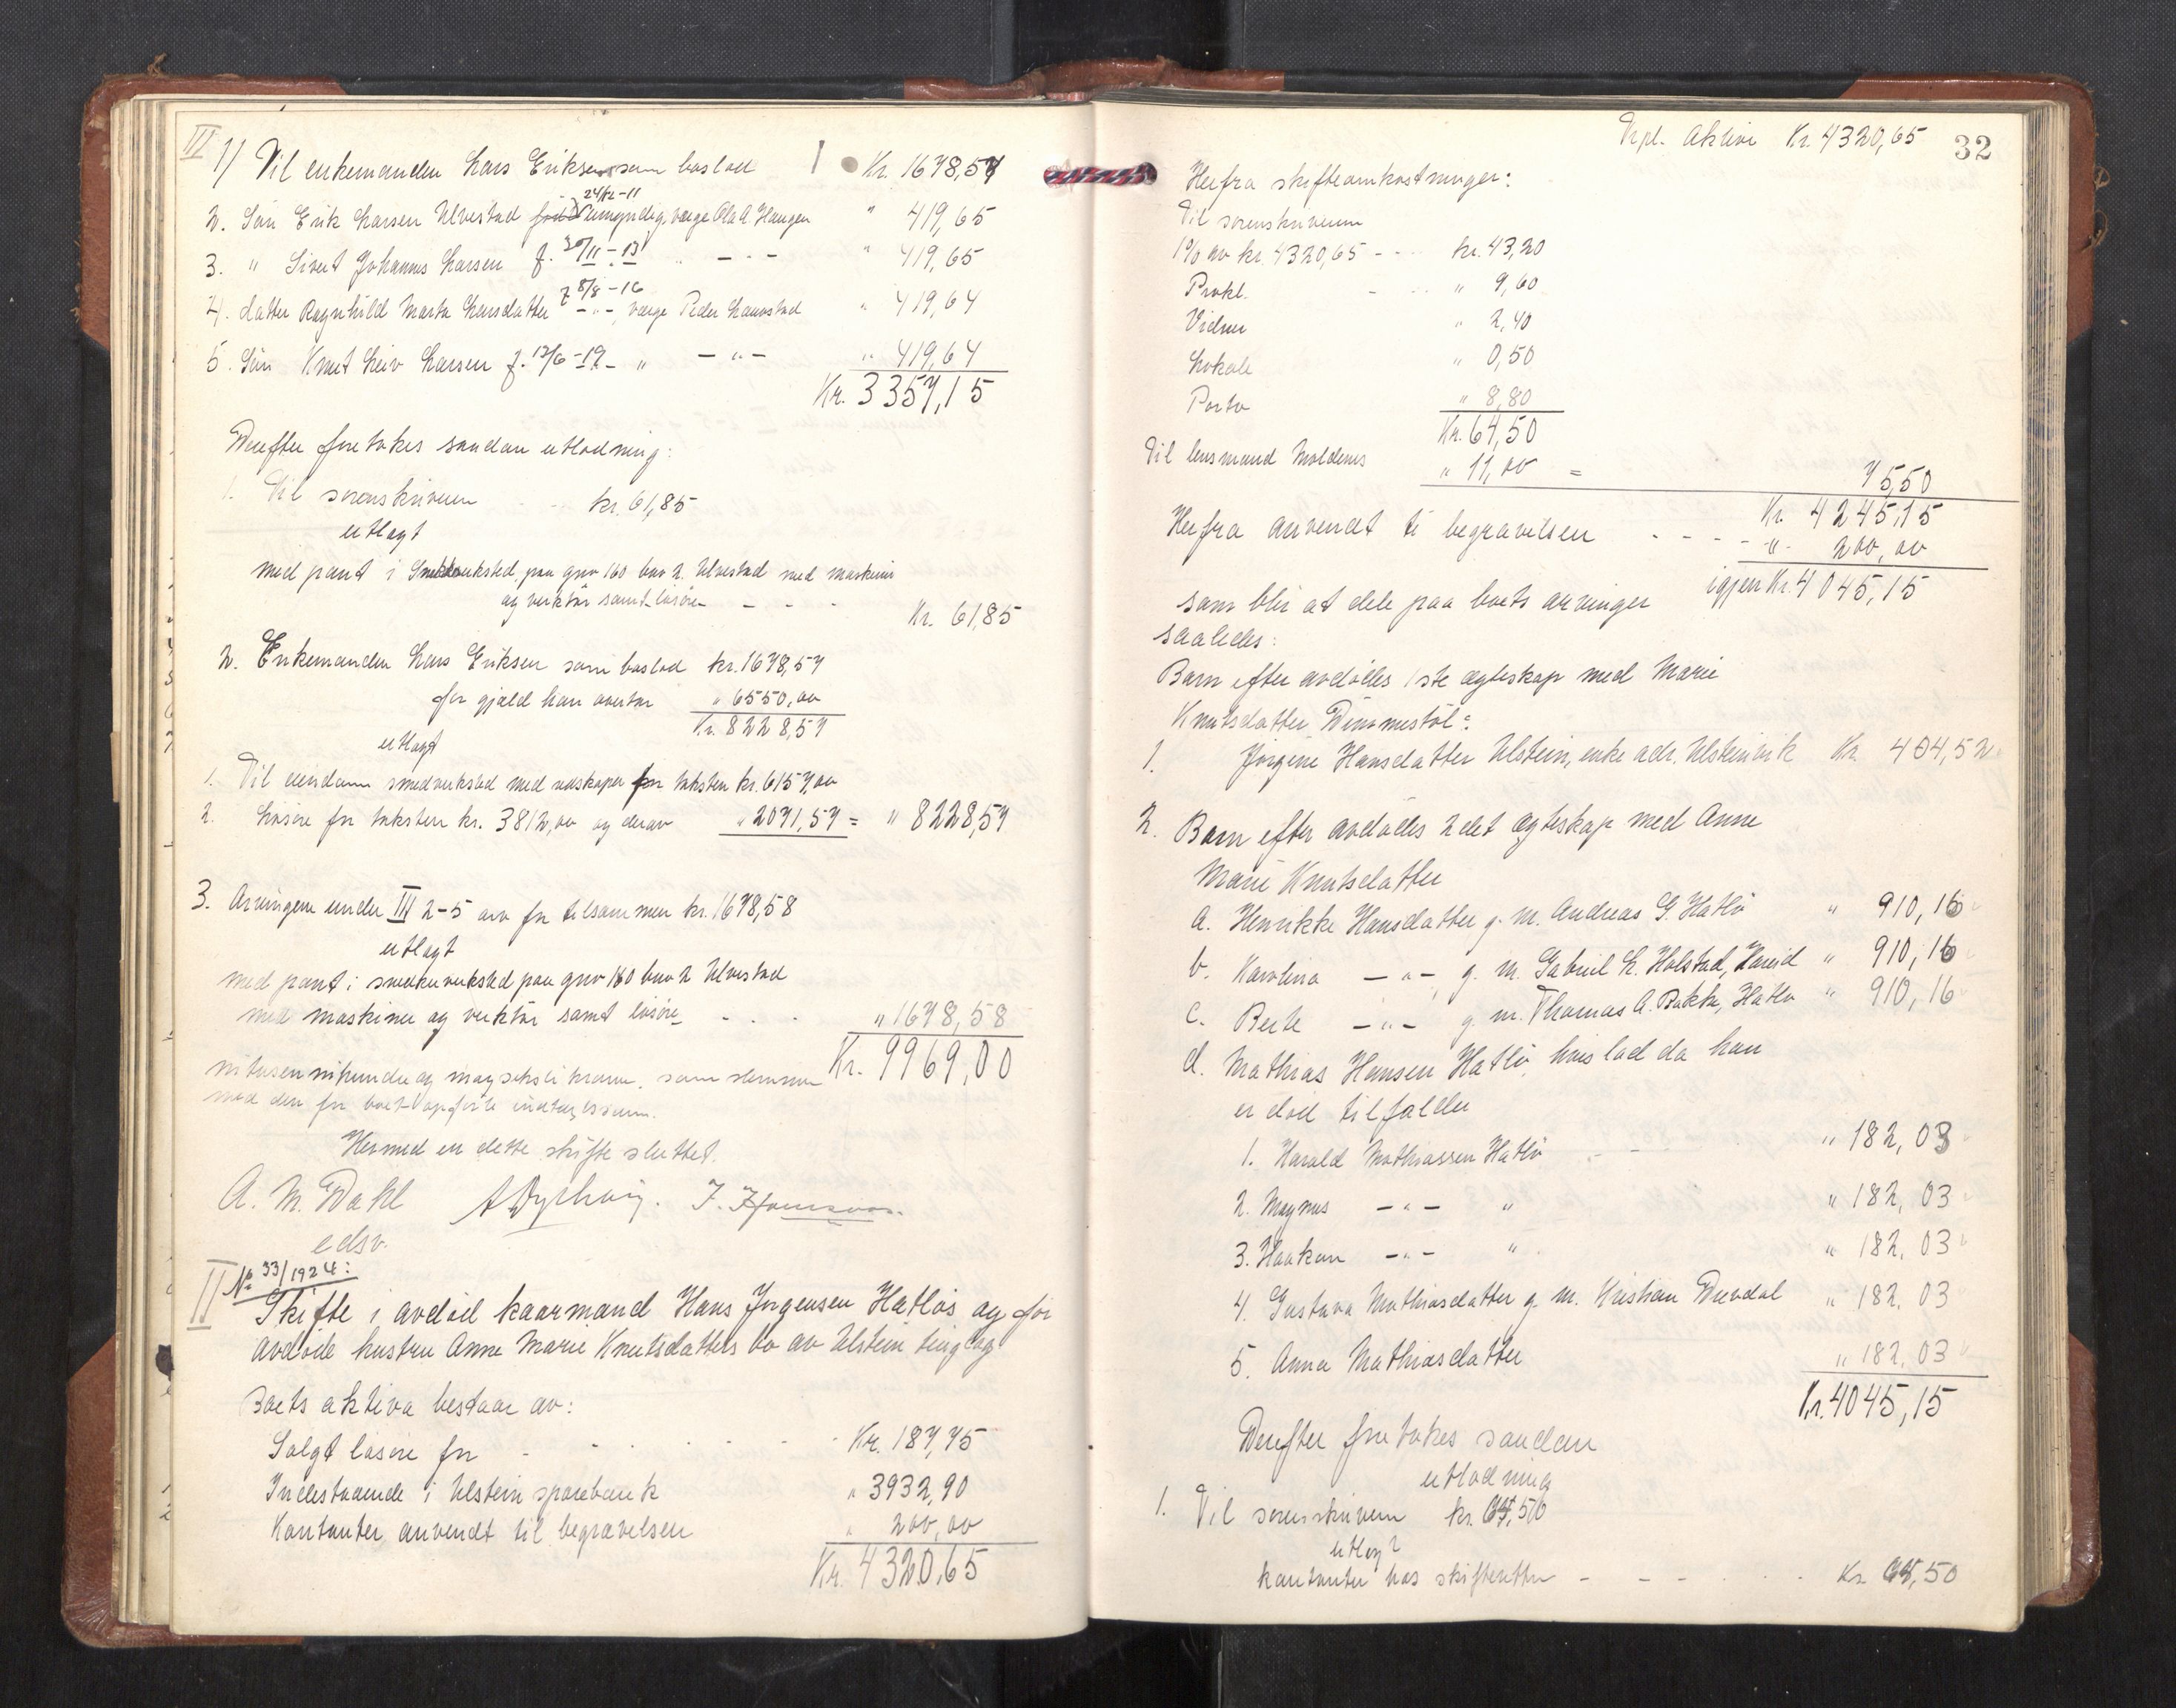 III
1) Til enkemanden Lars Eriksen som boslod Kr. 1678,57
24/12-11
2. Søn Erik Larsen Ulvestad umyndig, værge Ola A Haugen " 419,65
3. " Sivert Johannes Larsen f. 30/11-13 " - " - " 419,65
f 8/8-16
4. datter Ragnhild Marta Larsdatter - " - , værge Peder Lauvstad " 419,64
5. Søn Knut Leiv Larsen f. 12/6-19 - " - " - " 419,64
Kr. 3357,15
Derefter foretokes saadan utlodning:
1. Til sorenskriveren kr. 61,85
utlagt
med pant i Smedverksted paa gnr 160 bnr 2 Ulvestad med maskiner
og verktøi samt løsøre - - - Kr. 61,85
2. Enkemanden Lars Eriksen som boslod kr. 1678,57
for gjæld han overtar " 6550,00
Kr. 8228,57
utlagt
1. Til eiendom smedverksted med redskaper for taksten kr. 6157,00
2. Løsøre for taksten kr. 3812,00 og derav " 2071,57 = " 8228,57
3. Arvingene under III 2-5 arv for tilsammen kr. 1678,58
utlagt
med pant i smedverksted paa gnr 160 bnr 2 Ulvestad
med maskiner og verktøi samt løsøre - - - " 1678,58
Kr. 9969,00
nitusennihundre og niogseksti kroner, som stemmer
med den for boet opførte indtægtssum.
Hermed er dette skifte sluttet.
A. M. Dahl
edsv.
II No 33/1924:
Skifte i avdød kaarmand Hans Jørgensen Hatløs og før
avdøde hustru Anne Marie Knutsdatters bo av Ulstein tinglag
Boets aktiva bestaar av:
Solgt løsøre for - - - - - Kr. 187,75
Indestaaende i Ulstein sparebank " 3932,90
Kontanter anvendt til begravelsen " 200,00
Kr. 4320,65
32
Trpt. Aktiva Kr. 4320,65
Herfra skifteomkostninger:
Til sorenskriveren
1% av kr. 4320,65 - - - kr. 43,20
Prokl. - - - " 9,60
Vidner " 2,40
Lokale " 0,50
Porto " 8,80
Kr. 64,50
Til lensmand Moldenes " 11,00 = 75,50
Kr. 4245,15
Herfra anvendt ti begravelsen - - - - " - 200,00
igjen Kr. 4045,15
som blir at dele paa boets arvinger
saaledes:
Barn efter avdødes 1ste ægteskap med Marie
Knutsdatter Dimmestøl:
1. Jørgine Hansdatter Ulstein, enke adr. Ulsteinvik Kr. 404,52
2. Barn efter avdødes 2det ægteskap med Anne
Marie Knutsdatter
a. Henrikke Hansdatter g. m. Andreas G. Hatlø " 910,16
b. Karolina - " - g. m. Gabriel L. Holstad, Hareid " 910,16
c. Berte - " - g. m. Thomas A. Bakke, Hatlø " 910,16
d. Mathias Hansen Hatlø, hvis lod da han
er død tilfalder
1. Harald Mathiassen Hatlø - - - " 182,03
2. Magnus - " - " " 182,03
3. Haakon - " - " " 182,03
4. Gustava Mathiasdatter g. m. Kristian Duedal " 182,03
5. Anna Mathiasdatter " 182,03
Kr. 4045,15
Derefter foretokes saadan
utlodning
1. Til sorenskriveren kr. 64,50
utlagt
kontanter hos skifteretten - - - - - Kr. 64,50